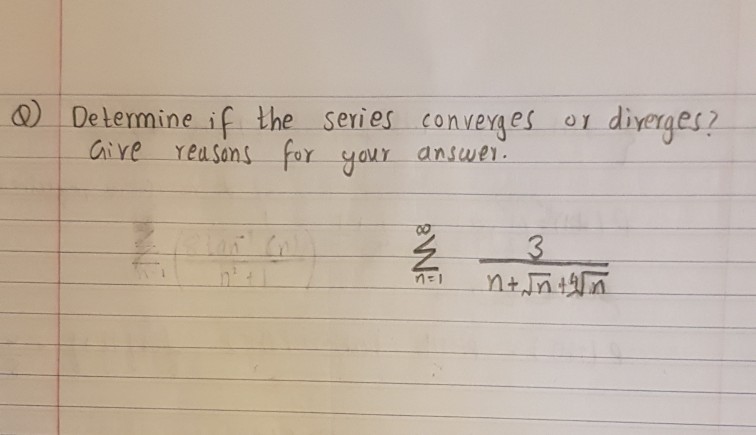 Q) Determine if the series converges or diverges?
Give reasons for your answer.
∞
Σ 3
n=1 n+√n+∜n